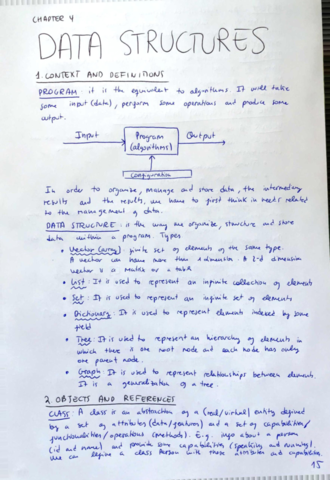 CHAPTER 4
DATA STRUCTURES
1. CONTEXT AND DEFINITIONS
PROGRAM it is the equivalent to algorithms. It will take
some input (data), perform some operations and produce some
output.
Input
Program
(algorithms)
Output
configuration
In order to organise, manage and store data, the intermediary
results and the results, we have to first think in needs related
to the management of data.
DATA STRUCTURE: is the way we organise, structure and store
data within a program. Types
• Vector (array) finite set of elements of the same type.
A vector can have more than 1 dimension. A 2-d dimension
vector is a matrix or a table
• List: It is used to represent an infinite collection of elements
• Set: It is used to represent an infinite set of elements
• Dictionary: It is used to represent elements indexed by some
field
• Tree: It is used to represent an hierarchy of elements in
which there is one root node and each node has only
one parent node.
• Graph It is used to represent relationships between elements.
It is a generalization of a tree.
2. OBJECTS AND REFERENCES
CLASS: A class is an abstraction of a (real/virtual) entity defined
by a set of attributes (data/features) and a set of capabilities/
functionalities/operations (methods). E.g. info about a person
(id and name) and provide some capabilities (speaking and running).
We can define a class Person with those attributes and capabilities
15